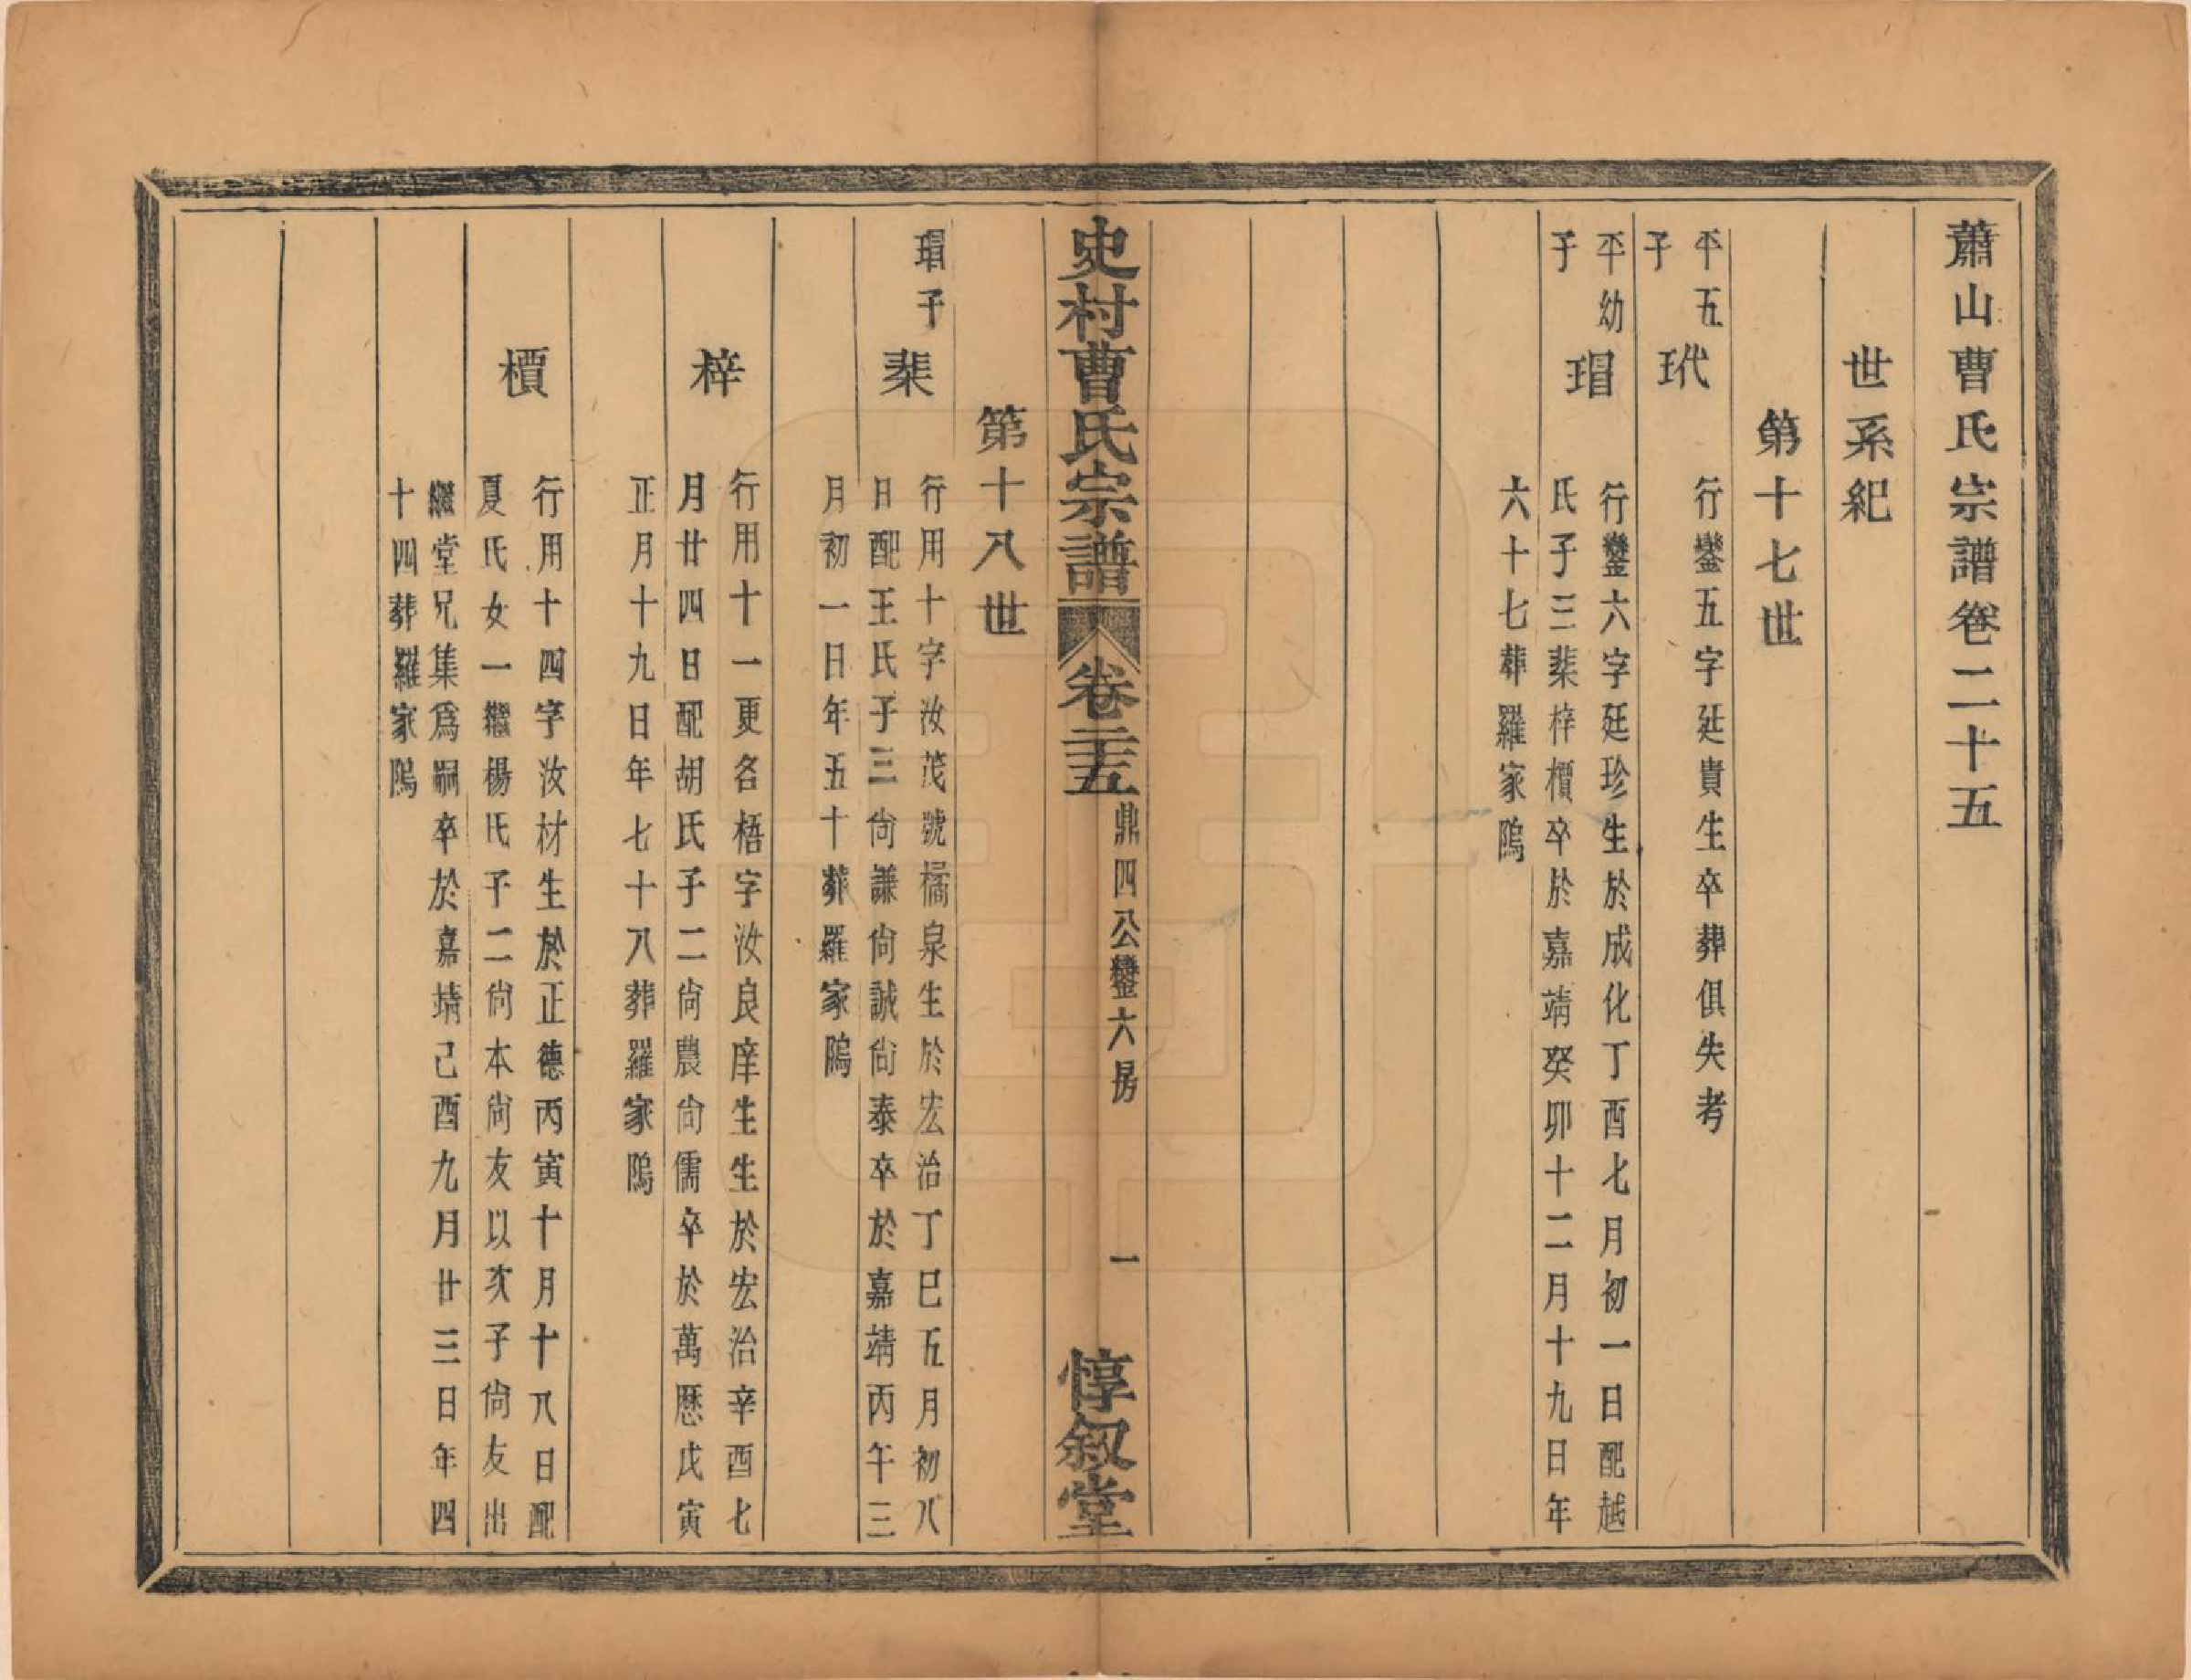 蕭山曹氏宗譜卷二十五
世系紀
第十七世
平五子
玳
行鑾五字廷貴生卒葬俱失考
平幼子
瑁
行鑾六字廷珍生於成化丁酉七月初一日配越
氏子三棐梓檟卒於嘉靖癸卯十二月十九日年
六十七葬羅家隖
史村曹氏宗譜
卷二十五
鼎四公鑾六房
一
惇叙堂
第十八世
瑁子
棐
行用十字汝茂號橘泉生於宏治丁巳五月初八
日配王氏子三尙謙尙誠尙泰卒於嘉靖丙午三
月初一日年五十葬羅家隖
梓
行用十一更名梧字汝良庠生生於宏治辛酉七
月廿四日配胡氏子二尙農尙儒卒於萬歷戊寅
正月十九日年七十八葬羅家隖
檟
行用十四字汝材生於正德丙寅十月十八日配
夏氏女一繼楊氏子二尙本尙友以次子尙友出
繼堂兄集爲嗣卒於嘉靖己酉九月廿三日年四
十四葬羅家隖